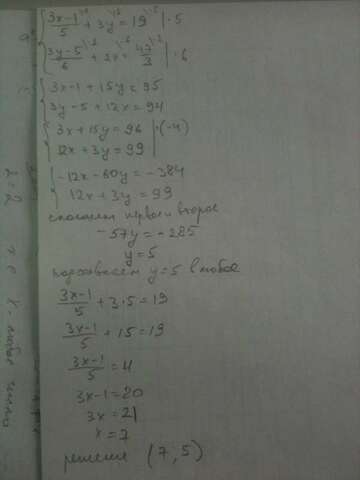 (3x-1)/5 + 3y = 19 | · 5
(3y-5)/6 + 2x = 47/3 | · 6
3x-1+15y=95
3y-5+12x=94
3x+15y=96 | · (-4)
12x+3y=99
-12x-60y=-384
12x+3y=99
первое и второе
-57y=-285
y=5
y=5 в любое
(3x-1)/5 + 3·5=19
(3x-1)/5 + 15=19
(3x-1)/5 = 4
3x-1=20
3x=21
x=7
решение (7, 5)